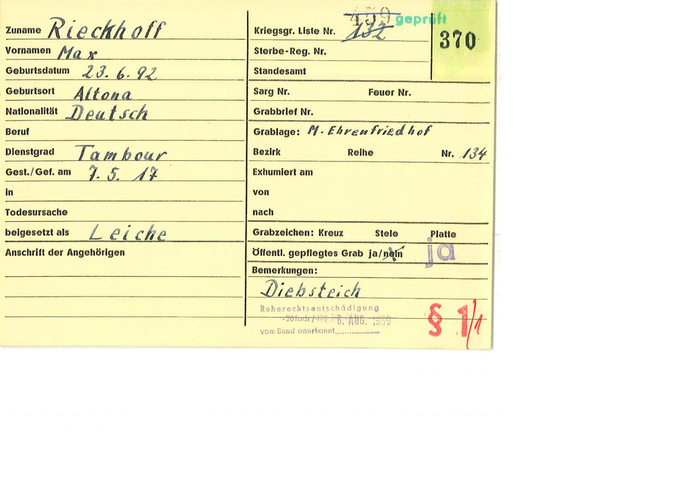 Zuname Rieckhoff
Vornamen Max
Geburtsdatum 23.6.92
Geburtsort Altona
Nationalität Deutsch
Beruf
Dienstgrad Tambour
Gest./Gef. am 7.5.17
in
Todesursache
beigesetzt als Leiche
Anschrift der Angehörigen
459 geprüft
Kriegsgr. Liste Nr. 132
370
Sterbe-Reg. Nr.
Standesamt
Sarg Nr. Feuer Nr.
Grabbrief Nr.
Grablage: M. Ehrenfriedhof
Bezirk Reihe Nr. 134
Exhumiert am
von
nach
Grabzeichen: Kreuz Stele Platte
Öffentl. gepflegtes Grab ja/nein ja
Bemerkungen:
Diebsteich
Ruherechtsentschädigung
AUG.
vom Bund anerkannt
§ 1/1